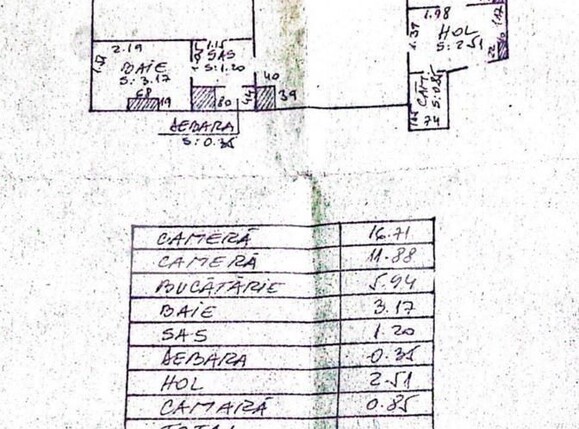 1.98
HOL
S: 2.51
1.37
2.19
1.15
SAS
S: 1.20
BAIE
S: 3.17
68
19
80
44
40
39
CAM.
S: 0.85
74
DEBARA
S: 0.35
CAMERĂ 16.71
CAMERĂ 11.88
BUCĂTĂRIE 5.94
BAIE 3.17
SAS 1.20
DEBARA 0.35
HOL 2.51
CAMARĂ 0.85
TOTAL